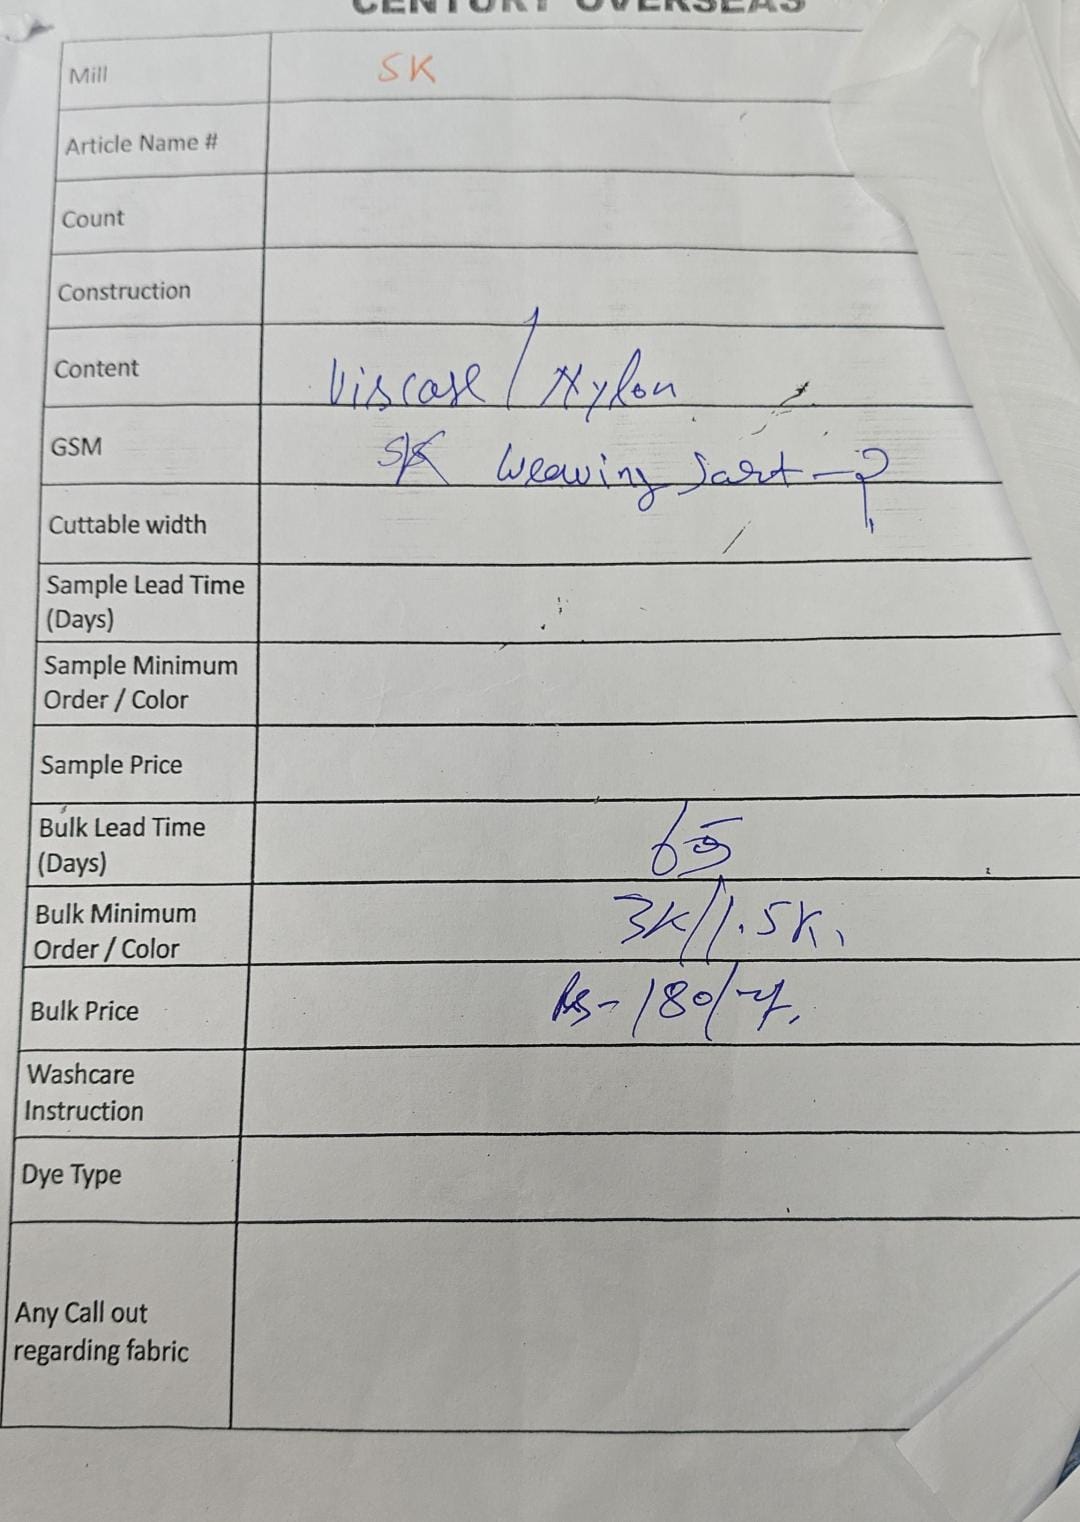 CENTURY OVERSEAS
Mill SK
Article Name #
Count
Construction
Content Viscose / Nylon
GSM SK Weaving Sart - ?
Cuttable width
Sample Lead Time
(Days)
Sample Minimum
Order / Color
Sample Price
Bulk Lead Time
(Days) 65
Bulk Minimum
Order / Color 3K/1.5K.
Bulk Price Rs- 180/-
Washcare
Instruction
Dye Type
Any Call out
regarding fabric